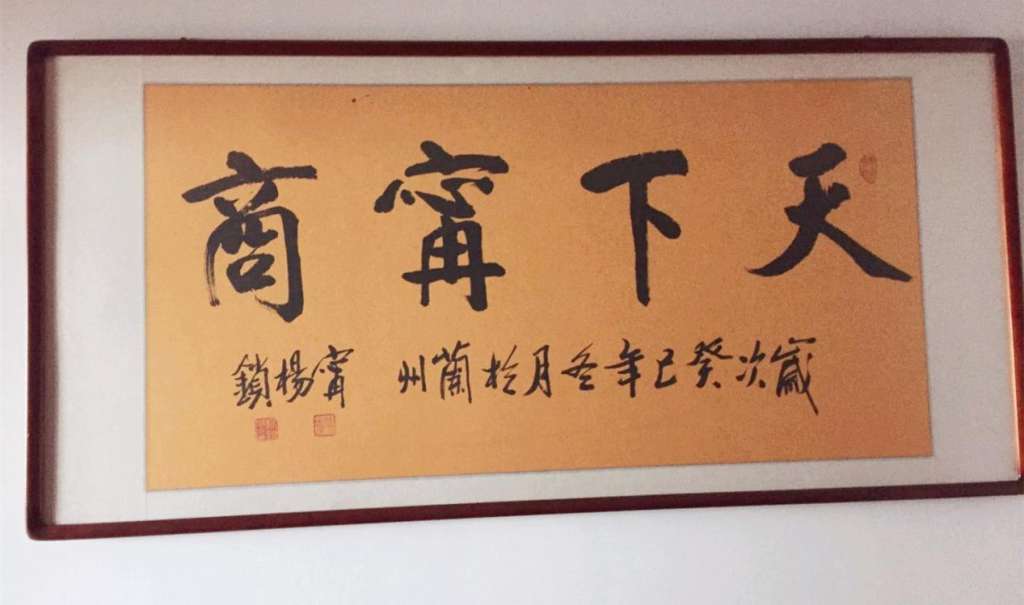 天下甯商
歲次癸巳年冬月於蘭州 甯楊鎖